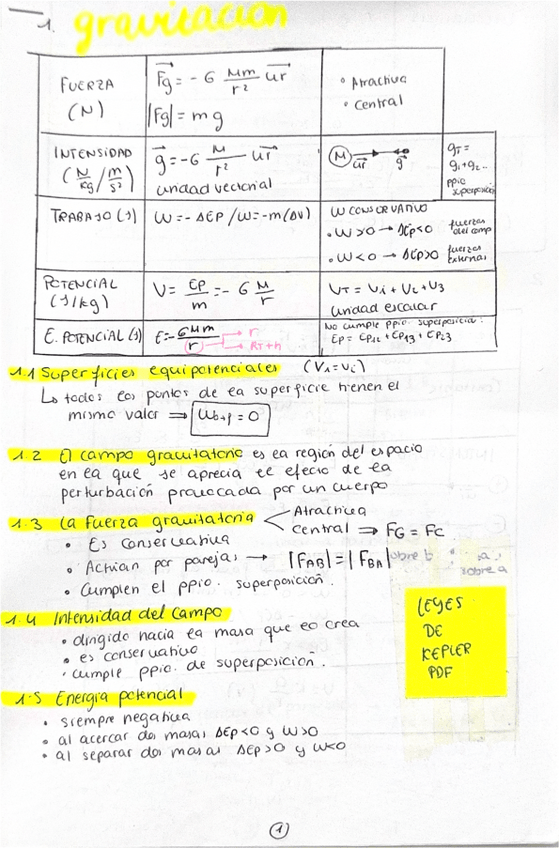 1. gravitación
FUERZA (N)
Fg = - G Mm/r² ur
|Fg| = m g
◦ Atractiva
◦ Central
INTENSIDAD (N/kg / m/s²)
g = - G M/r² ur
unidad vectorial
M ur g
gT = g1 + g2 ...
ppio superposición
TRABAJO (J)
W = - ΔEp / W = -m(ΔV)
W CONSERVATIVO
• W>0 → ΔEp<0 fuerzas del campo
• W<0 → ΔEp>0 fuerzas externas
POTENCIAL (J/kg)
V = Ep/m = - G M/r
VT = V1 + V2 + V3
unidad escalar
E. POTENCIAL (J)
E = - GMm/r → r
→ RT+h
No cumple ppio. superposición:
Ep = Ep12 + Ep13 + Ep23
1.1 Superficies equipotenciales (VA = Vi)
↳ todos los puntos de la superficie tienen el
mismo valor ⇒ W0→f = 0
1.2 El campo gravitatorio es la región del espacio
en la que se aprecia el efecto de la
perturbación provocada por un cuerpo
1.3 La Fuerza gravitatoria < Atractiva
Central ⇒ FG = FC
• Es conservativa
• Actúan por parejas → |FAB| = |FBA| sobre b " a,
sobre a
• Cumplen el ppio. superposición.
1.4 Intensidad del campo
• dirigido hacia la masa que lo crea
• es conservativo
• cumple ppio. de superposición.
LEYES
DE
KEPLER
PDF
1.5 Energía potencial
• siempre negativa
• al acercar dos masas ΔEp<0 y W>0
• al separar dos masas ΔEp>0 y W<0
1